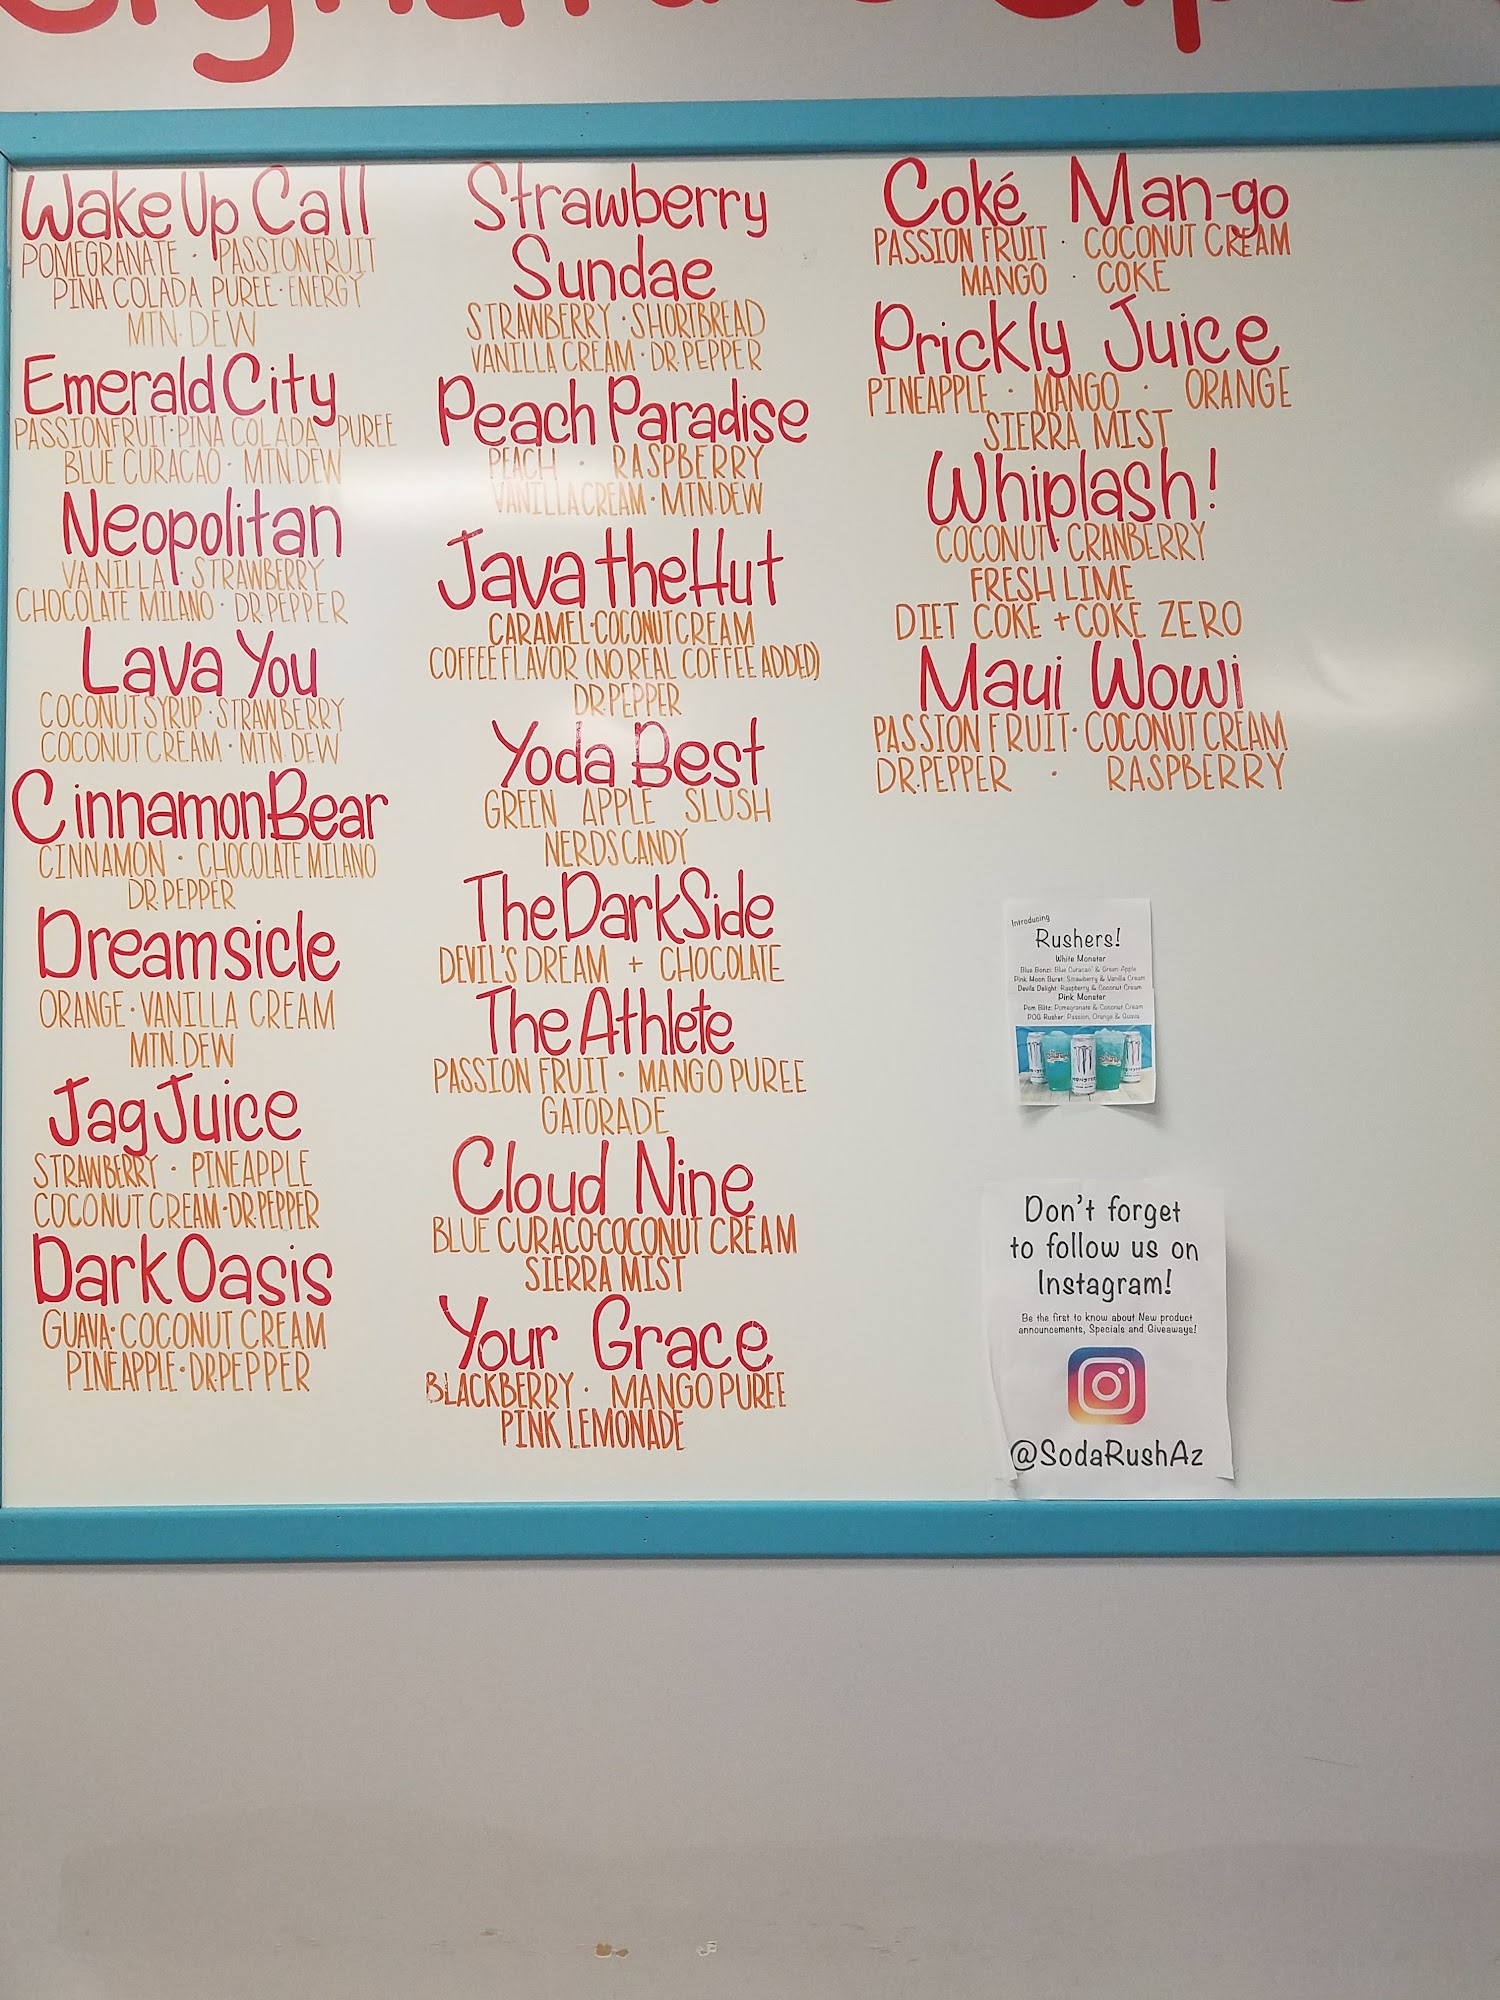 Wake Up Call
POMEGRANATE · PASSIONFRUIT
PINA COLADA PUREE · ENERGY
MTN. DEW
Emerald City
PASSIONFRUIT · PINA COLADA PUREE
BLUE CURACAO · MTN. DEW
Neopolitan
VANILLA · STRAWBERRY
CHOCOLATE MILANO · DR. PEPPER
Lava You
COCONUT SYRUP · STRAWBERRY
COCONUT CREAM · MTN. DEW
Cinnamon Bear
CINNAMON · CHOCOLATE MILANO
DR. PEPPER
Dreamsicle
ORANGE · VANILLA CREAM
MTN. DEW
Jag Juice
STRAWBERRY · PINEAPPLE
COCONUT CREAM · DR. PEPPER
Dark Oasis
GUAVA · COCONUT CREAM
PINEAPPLE · DR. PEPPER
Strawberry
Sundae
STRAWBERRY · SHORTBREAD
VANILLA CREAM · DR. PEPPER
Peach Paradise
PEACH · RASPBERRY
VANILLA CREAM · MTN. DEW
Java the Hut
CARAMEL · COCONUT CREAM
COFFEE FLAVOR (NO REAL COFFEE ADDED)
DR. PEPPER
Yoda Best
GREEN APPLE SLUSH
NERDS CANDY
The Dark Side
DEVIL'S DREAM + CHOCOLATE
The Athlete
PASSION FRUIT · MANGO PUREE
GATORADE
Cloud Nine
BLUE CURACO · COCONUT CREAM
SIERRA MIST
Your Grace
BLACKBERRY · MANGO PUREE
PINK LEMONADE
Coké Man-go
PASSION FRUIT · COCONUT CREAM
MANGO · COKE
Prickly Juice
PINEAPPLE · MANGO · ORANGE
SIERRA MIST
Whiplash!
COCONUT · CRANBERRY
FRESH LIME
DIET COKE + COKE ZERO
Maui Wowi
PASSION FRUIT · COCONUT CREAM
DR. PEPPER · RASPBERRY
Introducing
Rushers!
White Monster
Blue Bonzi: Blue Curacao' & Green Apple
Pink Moon Burst: Strawberry & Vanilla Cream
Devils Delight: Raspberry & Coconut Cream
Pink Monster
Pom Blitz: Pomegranate & Coconut Cream
POG Rusher: Passion, Orange & Guava
Don't forget
to follow us on
Instagram!
Be the first to know about New product
announcements, Specials and Giveaways!
@SodaRushAz